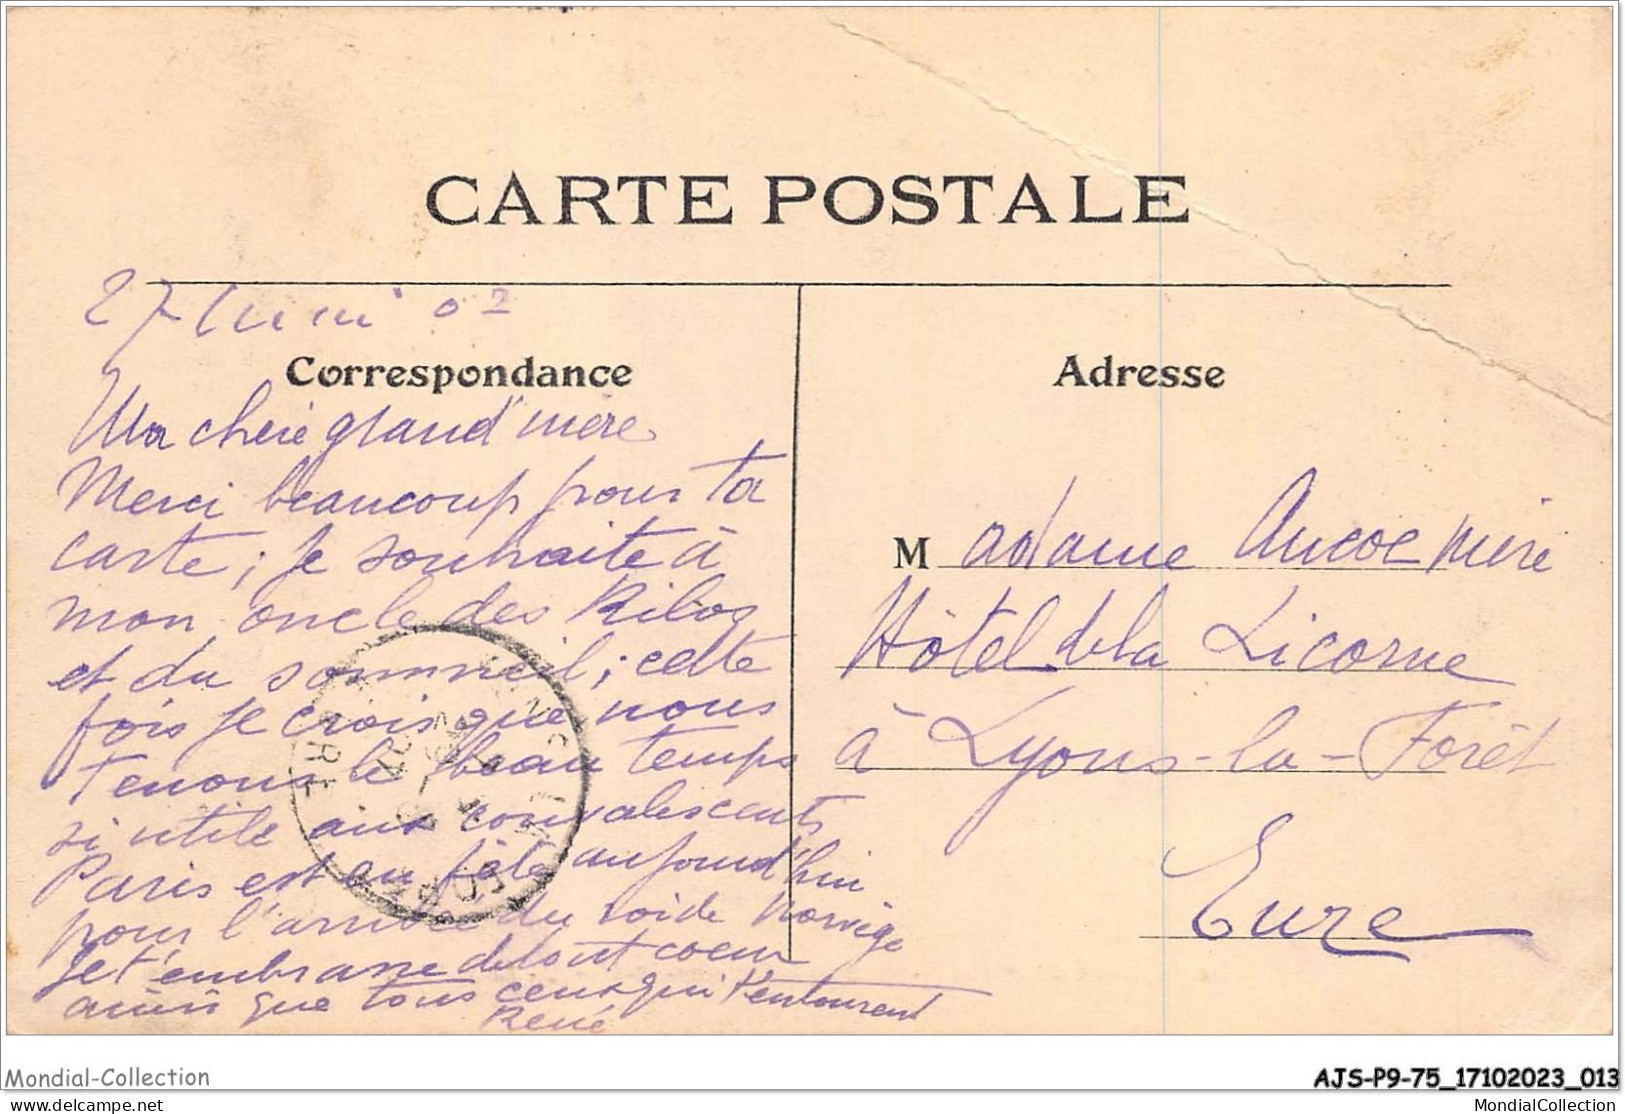 CARTE POSTALE
27 mai 02
Correspondance
Ma chère grand'mère
Merci beaucoup pour ta
carte ; je souhaite à
mon oncle des Kilos
et du sommeil ; cette
fois je crois que nous
tenons le beau temps
si utile aux convalescents
Paris est en fête aujourd'hui
pour l'arrivée du roi de Norvège
Je t'embrasse de tout coeur
ainsi que tous ceux qui t'entourent
René
Adresse
Madame mère
Hôtel de la Licorne
à Lyons-la-Forêt
Eure
EURE
Mondial-Collection
AJS-P9-75_17102023_013
delcampe.net
MondialCollection